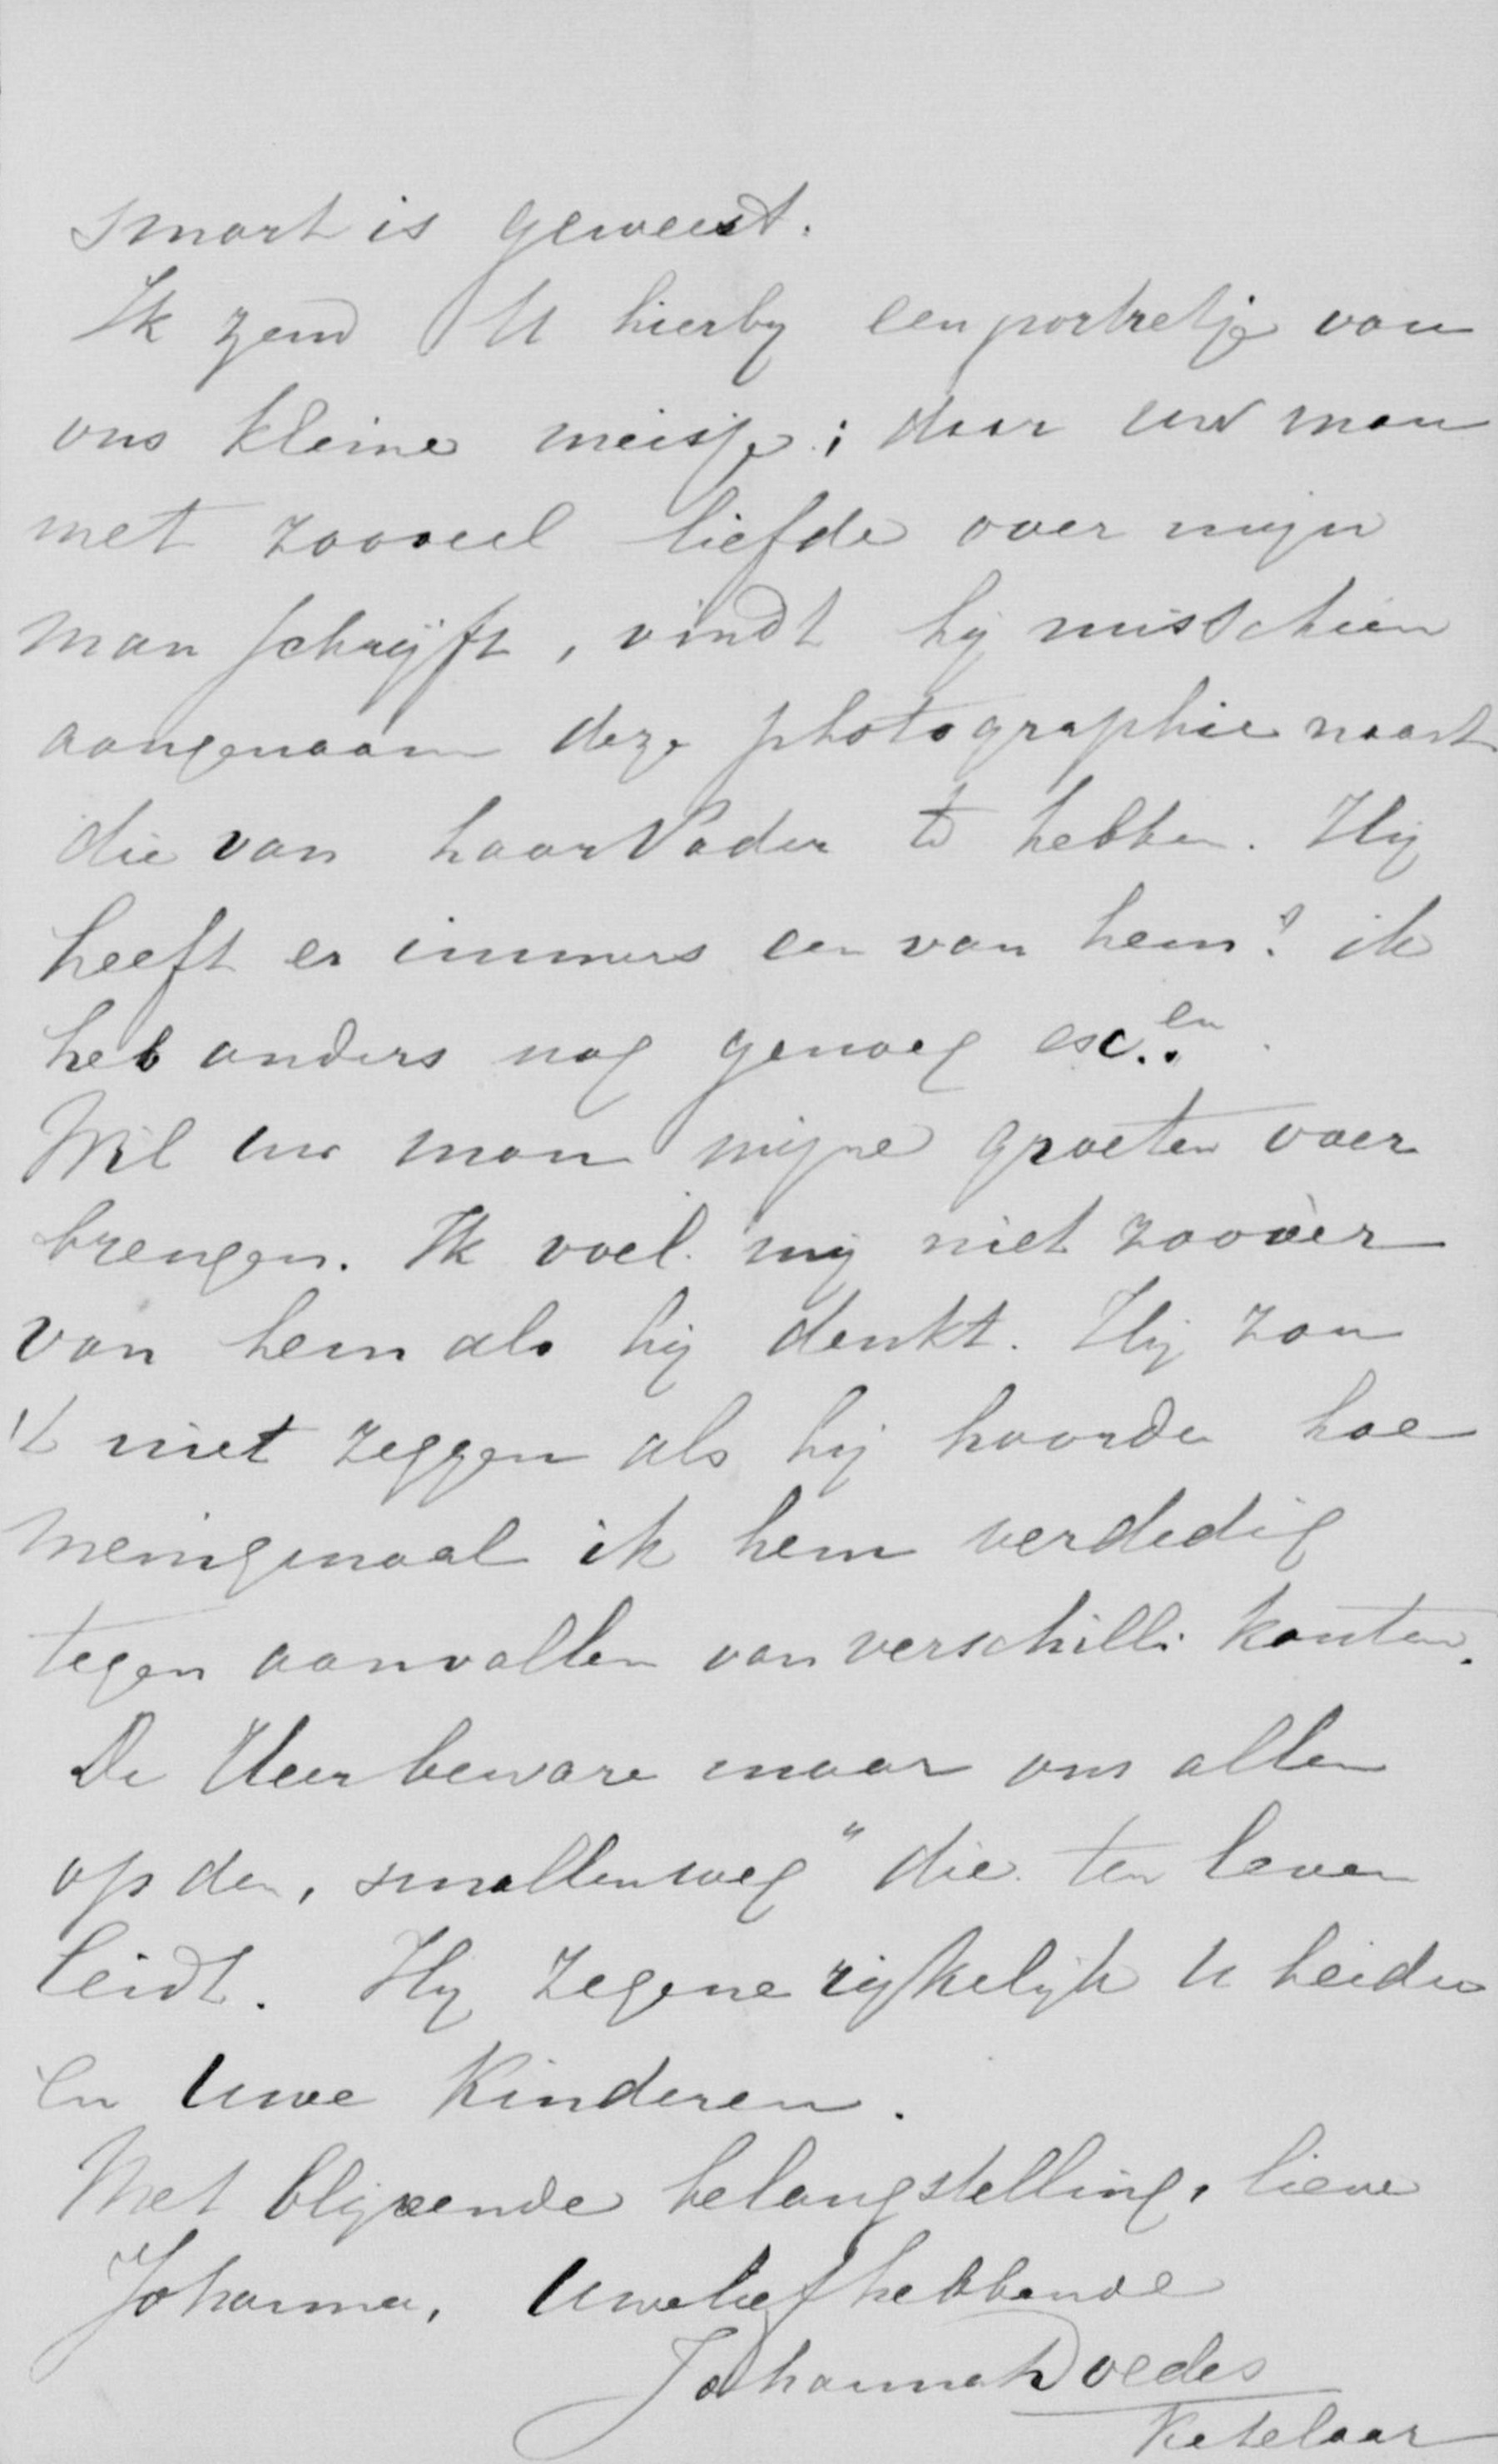 smart is geweest.
Ik zend U hierby een portretje van
ons kleine meisje; daar uw man
met zooveel liefde over mijn
man schrijft, vindt hij misschien
aangenaam deze photographie naast
die van haar Vader te hebben. Hij
heeft er immers een van hem? ik
heb anders nog genoeg ex.en.
Wil uw man mijne groeten over
brengen. Ik voel mij niet zoovèr
van hem als hij denkt. Hij zou
't niet zeggen als hij hoorde hoe
menigmaal ik hem verdedig
tegen aanvallen van verschill: kanten.
De Heer beware maar ons allen
op den, smallen weg" die ten leven
leidt. Hij zegene rijkelijk U beiden
en Uwe kinderen.
Met blijvende belangstelling, lieve
Johanna, Uwe liefhebbende
Johanna Doedes
Ketelaar